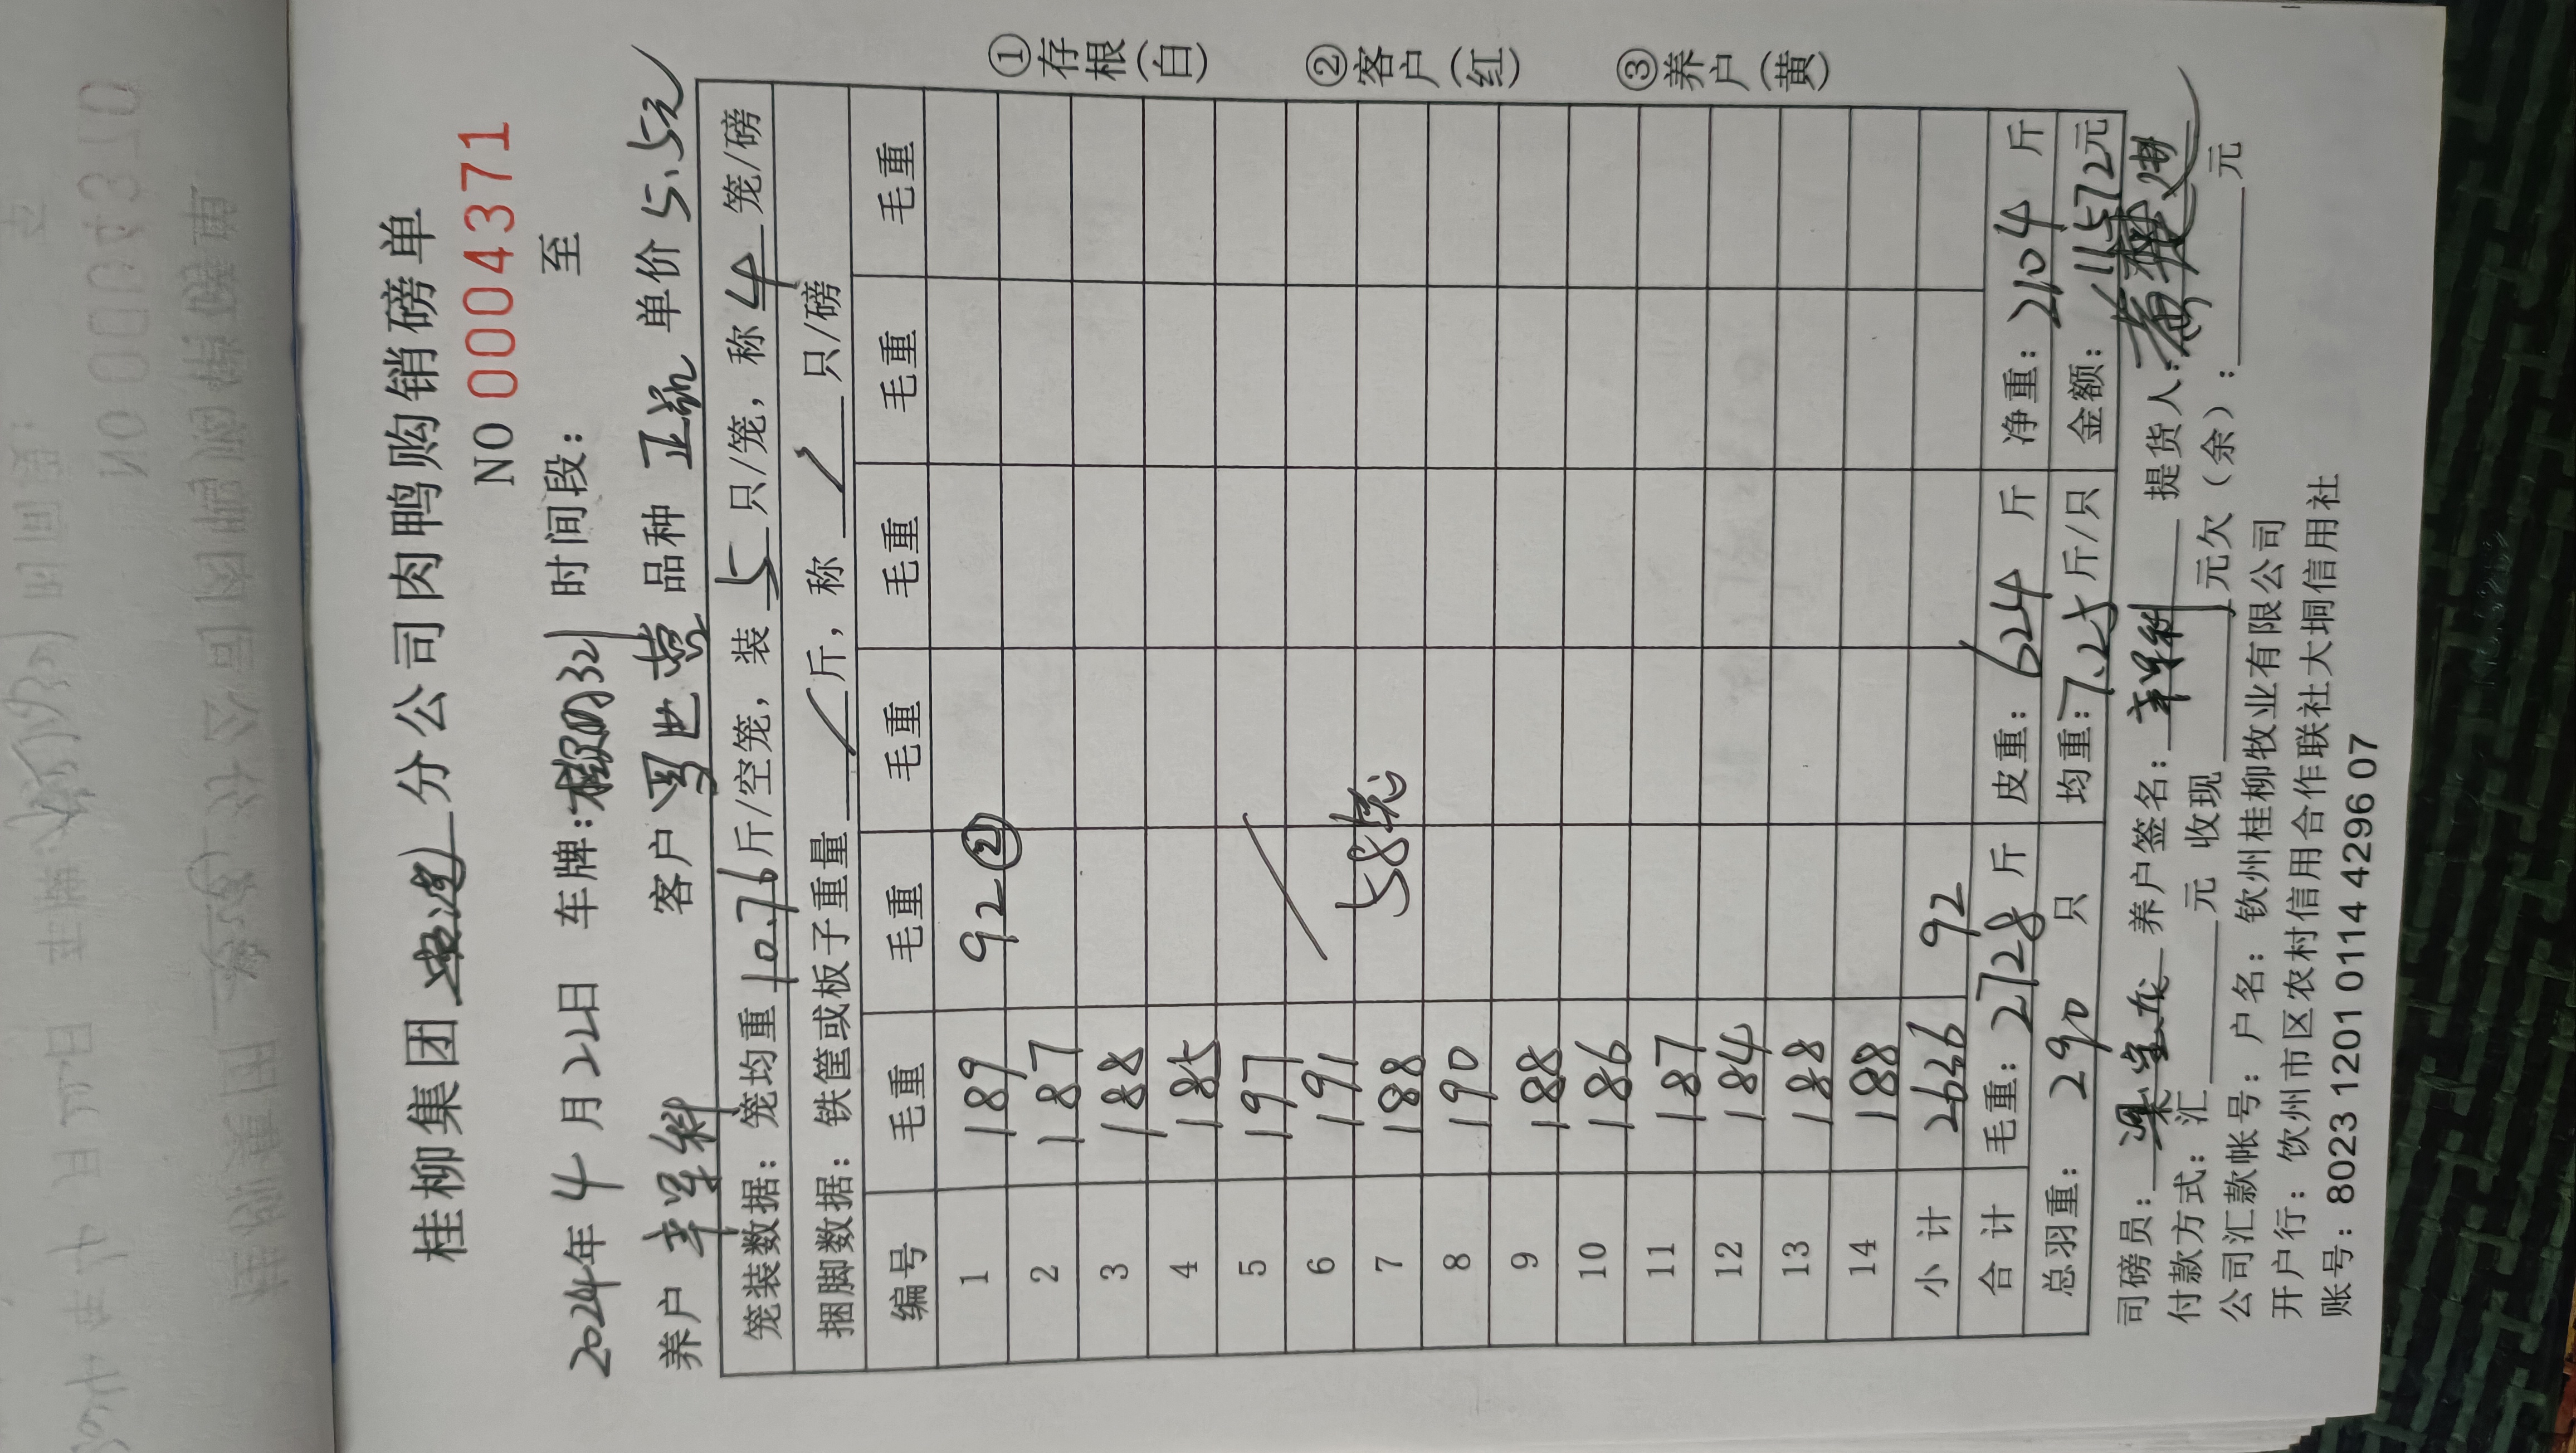 桂柳集团 分公司肉鸭购销磅单
NO 0004371
2024年 4 月 22日 车牌: 时间段: 至
养户 客户 冯世 品种 正 单价 5.5元
笼装数据: 笼均重 10.76 斤/空笼, 装 5 只/笼, 称 4 笼/磅
捆脚数据: 铁筐或板子重量 / 斤, 称 / 只/磅
编号 毛重 毛重 毛重 毛重 毛重 毛重
1 189 92②
2 187
3 188
4 185
5 197
6 191
7 188 58笼
8 190
9 188
10 186
11 187
12 184
13 188
14 188
小计 2636 92
合计 毛重: 2728 斤 皮重: 624 斤 净重: 2104 斤
总羽重: 290 只 均重: 7.25 斤/只 金额: 11572 元
司磅员: 梁 养户签名: 提货人:
付款方式: 汇 元 收现 元欠(余): 元
公司汇款帐号: 户名: 钦州桂柳牧业有限公司
开户行: 钦州市区农村信用合作联社大垌信用社
账号: 8023 1201 0114 4296 07
①存根(白)
②客户(红)
③养户(黄)